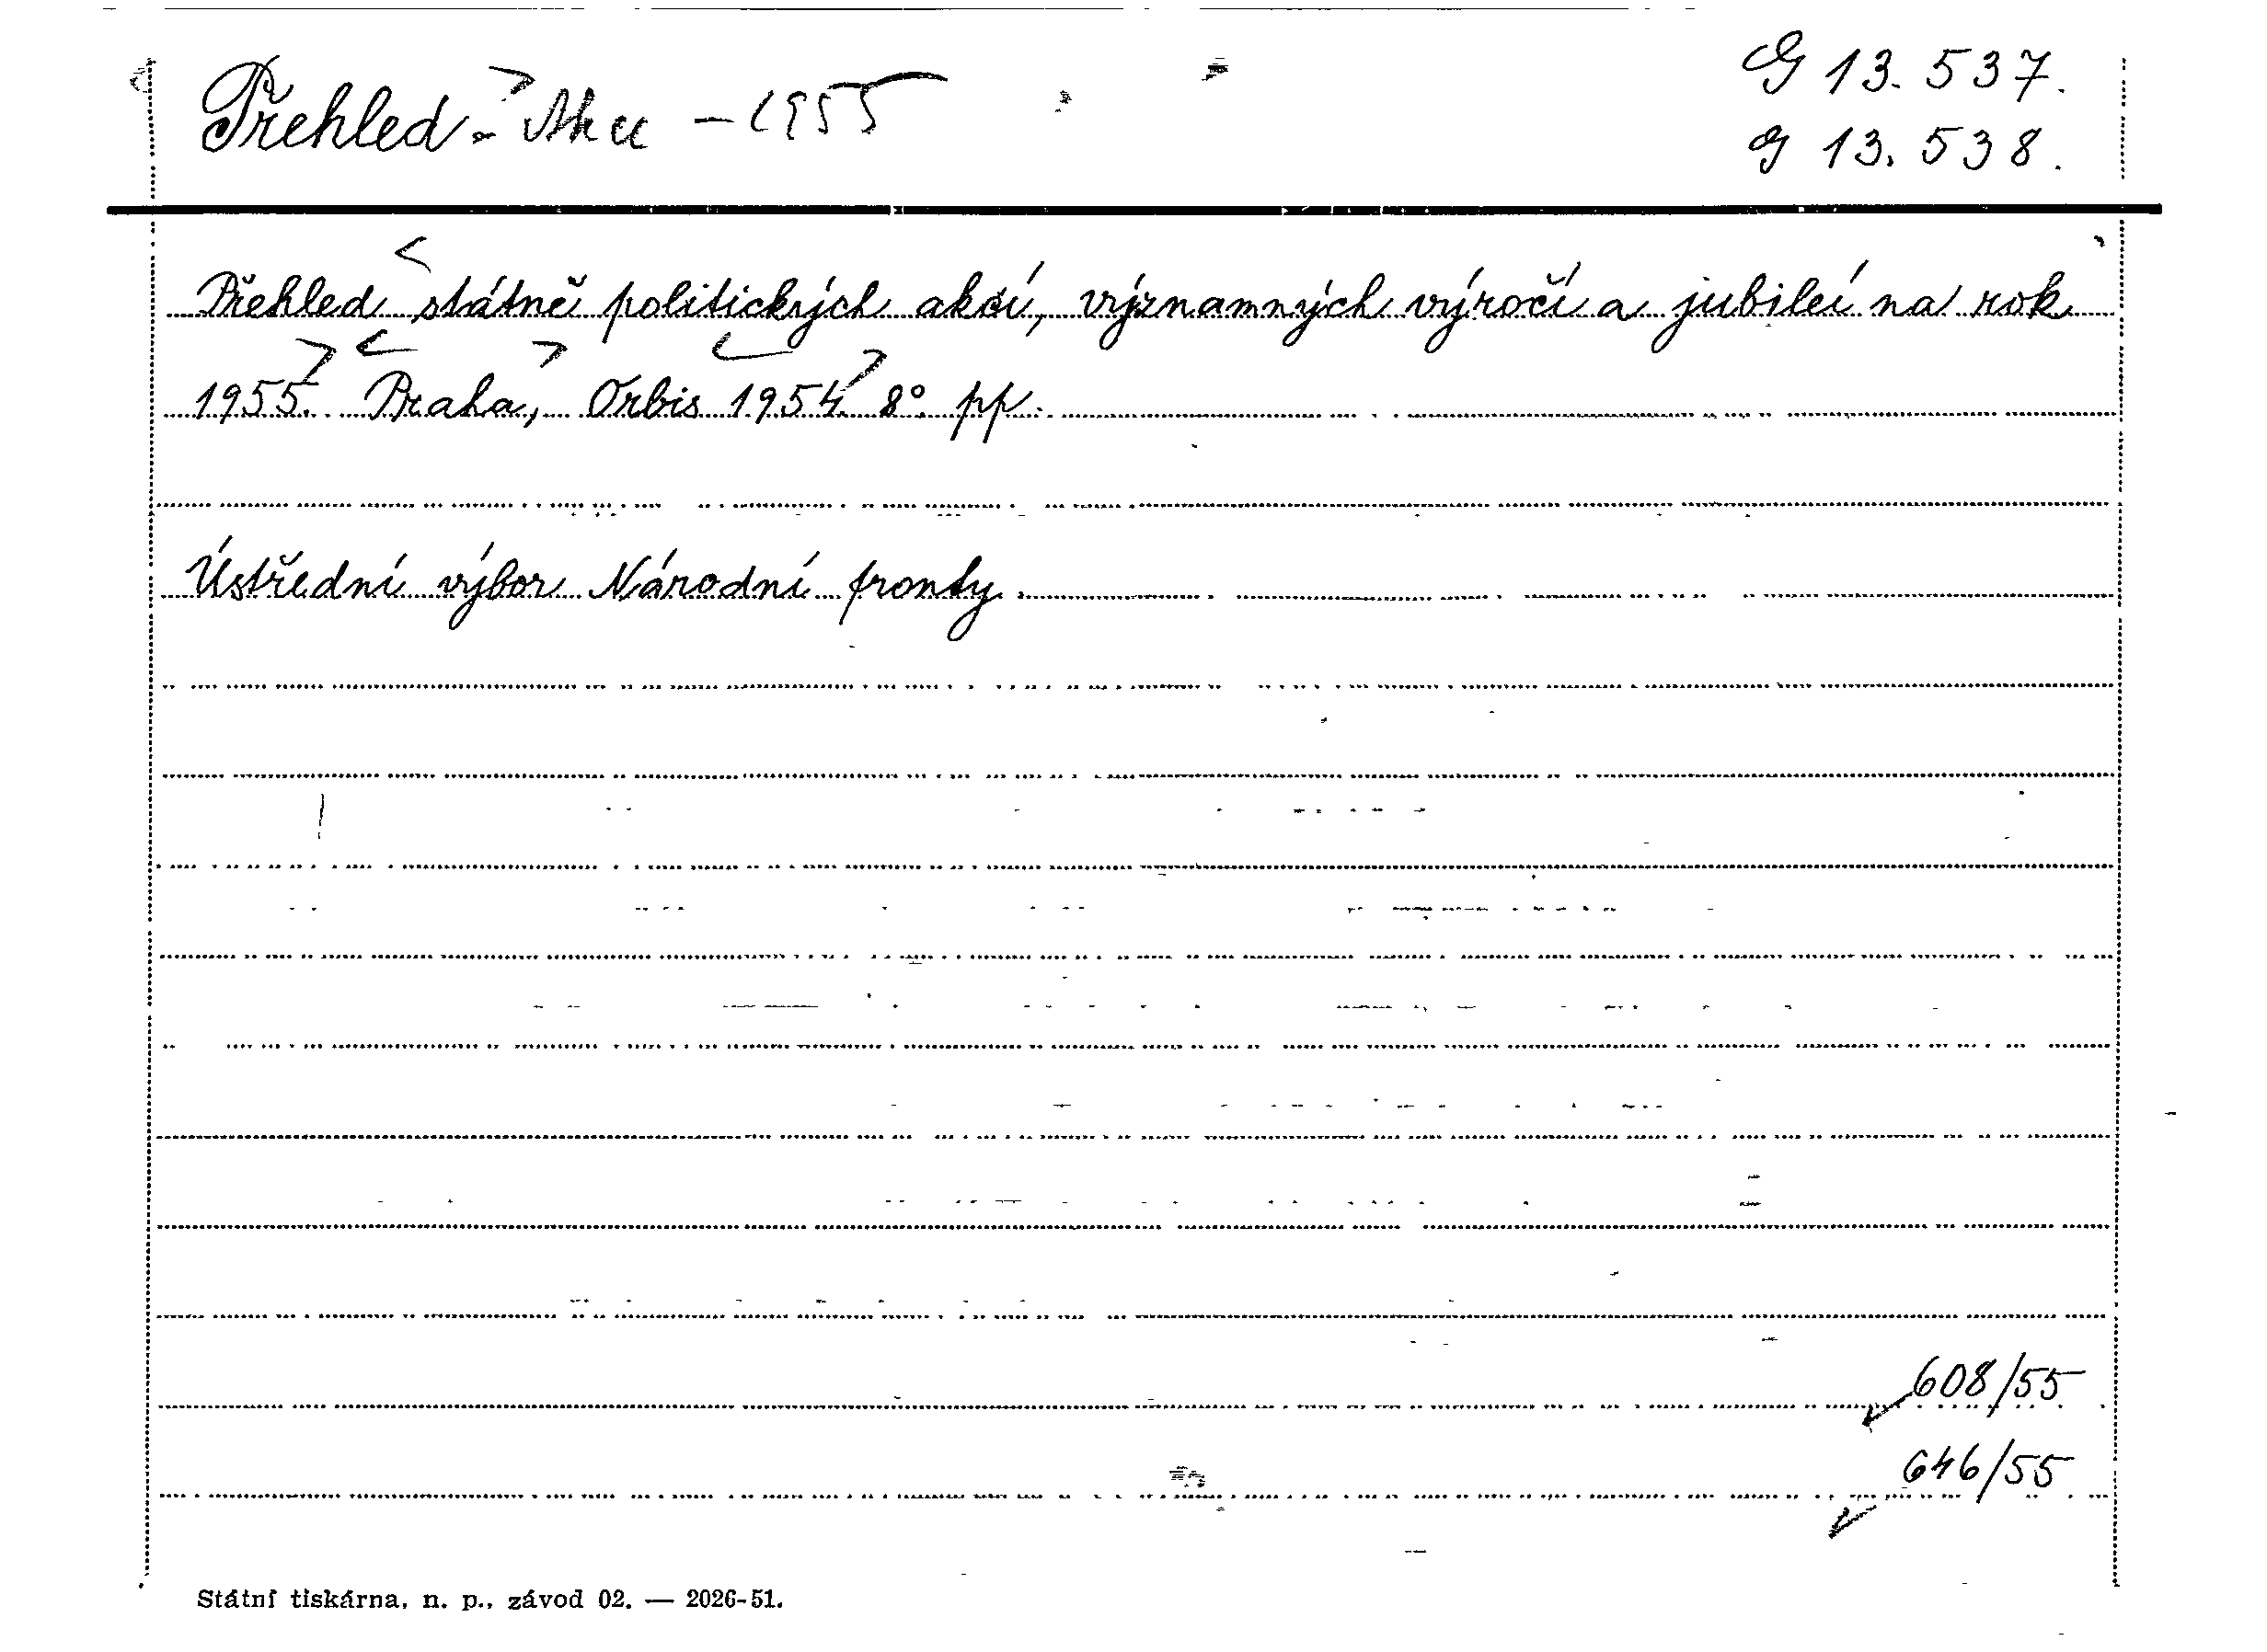 Přehled - - 1955
G 13.537.
G 13.538.
Přehled státně politických akcí, významných výročí a jubileí na rok
1955. Praha, Orbis 1954. 8° pp.
Ústřední výbor Národní fronty.
608/55
646/55
Státní tiskárna, n. p., závod 02. — 2026-51.